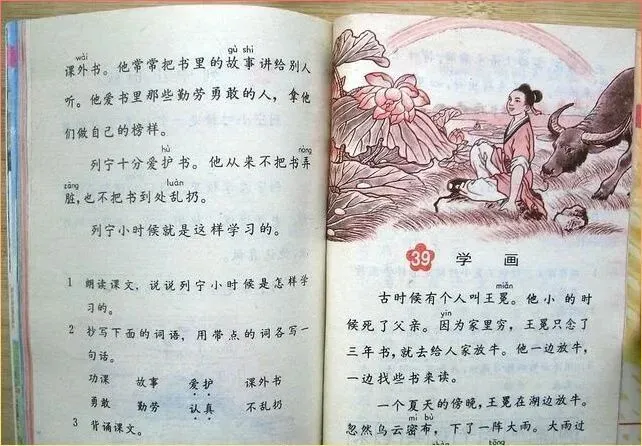 wài gù shi
课外书。他常常把书里的故事讲给别人
听。他爱书里那些勤劳勇敢的人，拿他
们做自己的榜样。
hù nòng
列宁十分爱护书。他从来不把书弄
zāng luàn
脏，也不把书到处乱扔。
列宁小时候就是这样学习的。
1 朗读课文，说说列宁小时候是怎样学
习的。
2 抄写下面的词语，用带点的词各写一
句话。
功课 故事 爱护 课外书
勇敢 勤劳 认真 不乱扔
3 背诵课文。
39 学画
miǎn
古时候有个人叫王冕。他小的时
yīn
候死了父亲。因为家里穷，王冕只念了
三年书，就去给人家放牛。他一边放牛，
一边找些书来读。
一个夏天的傍晚，王冕在湖边放牛。
mì bù
忽然乌云密布，下了一阵大雨。大雨过
tōng